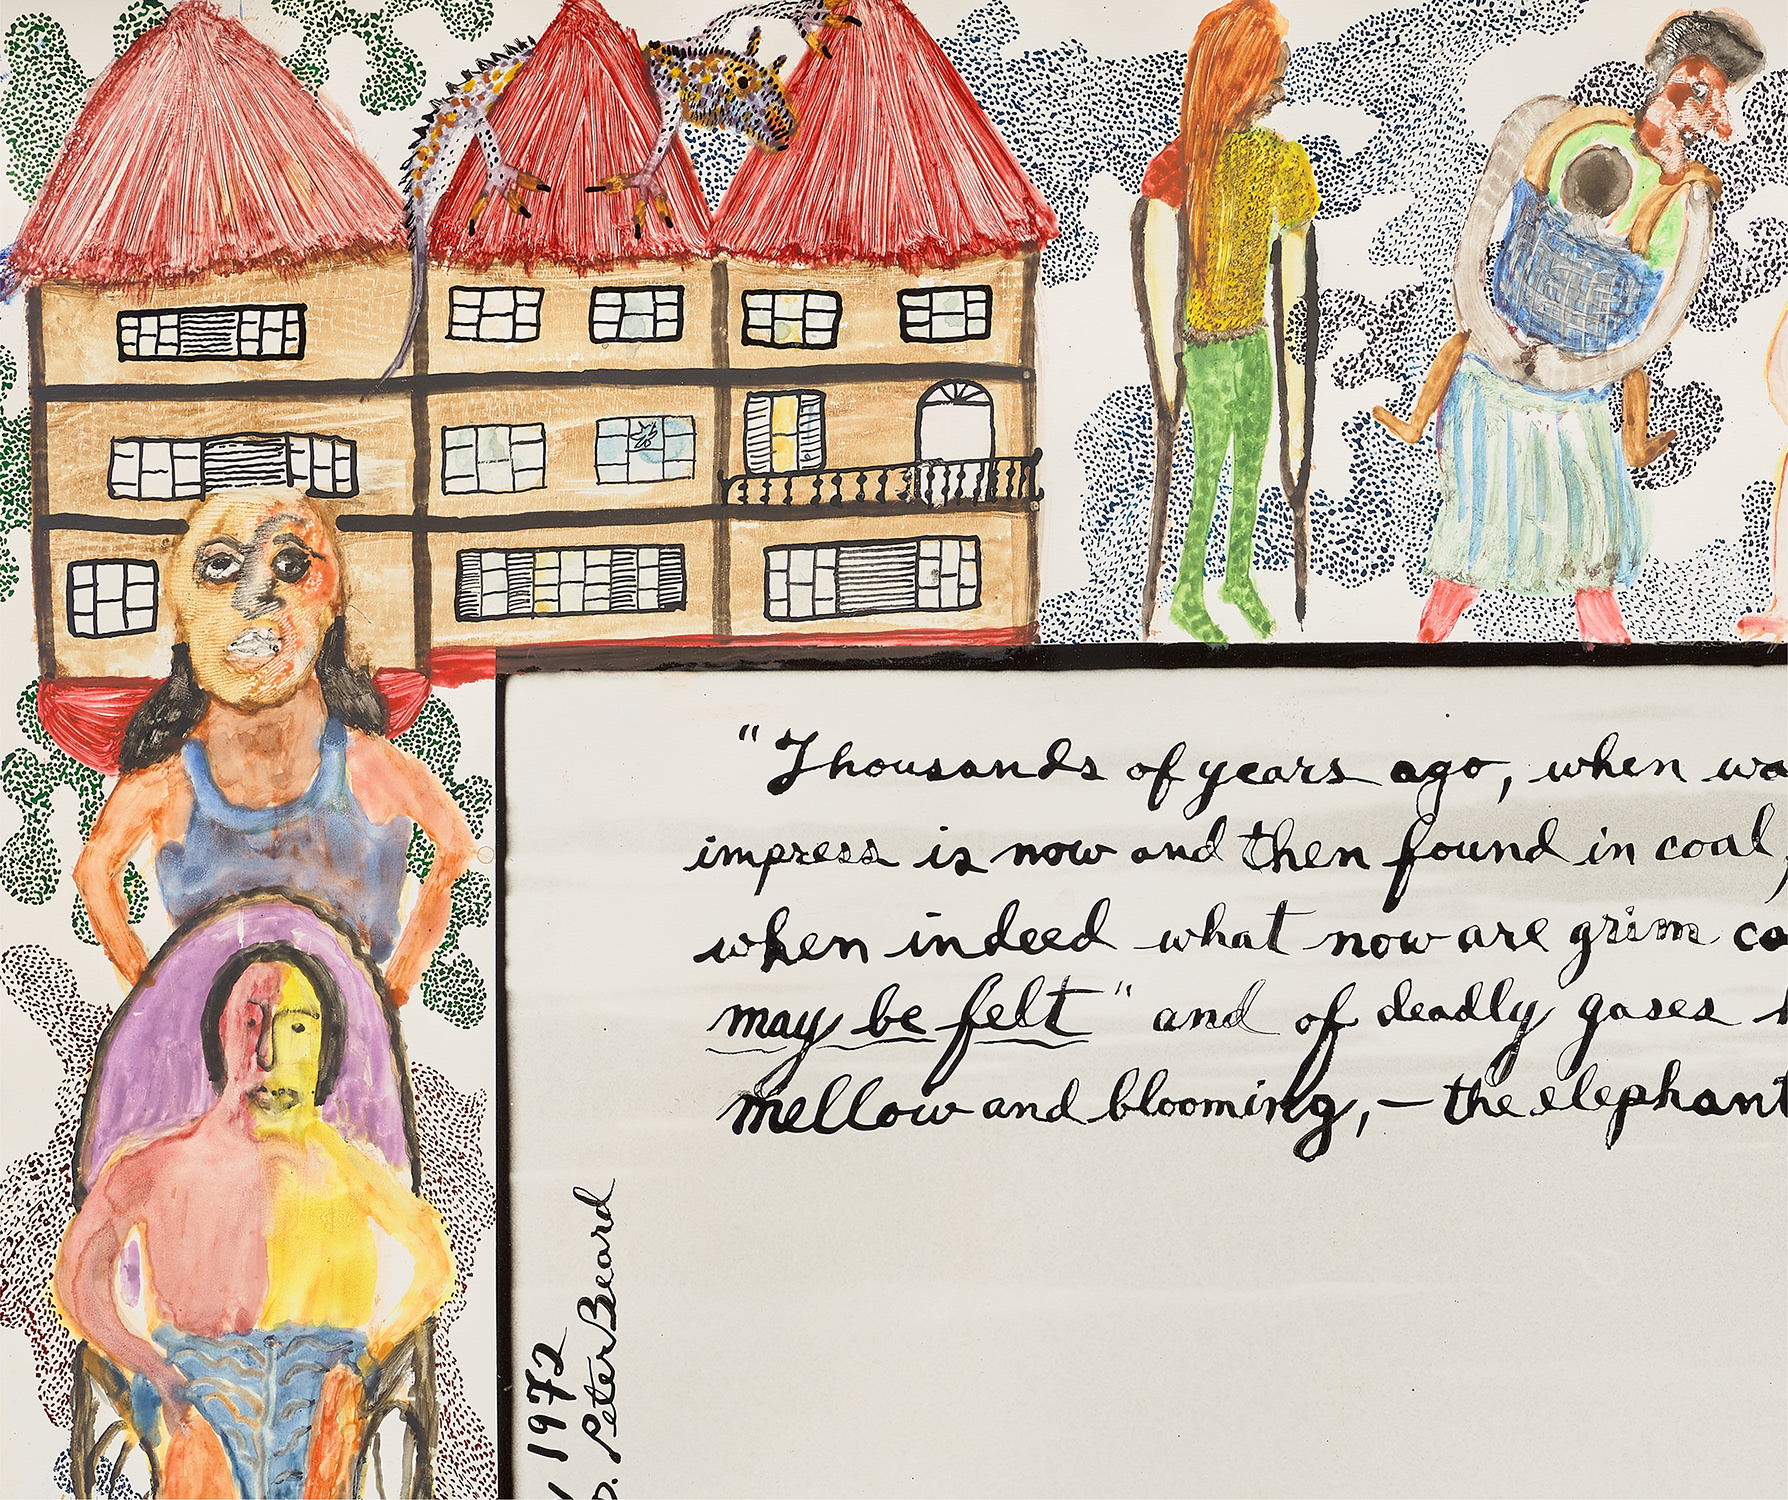 "Thousands of years ago, when wa
impress is now and then found in coal,
when indeed what now are grim co
may be felt" and of deadly gases
mellow and blooming, – the elephant
1972
Peter Beard